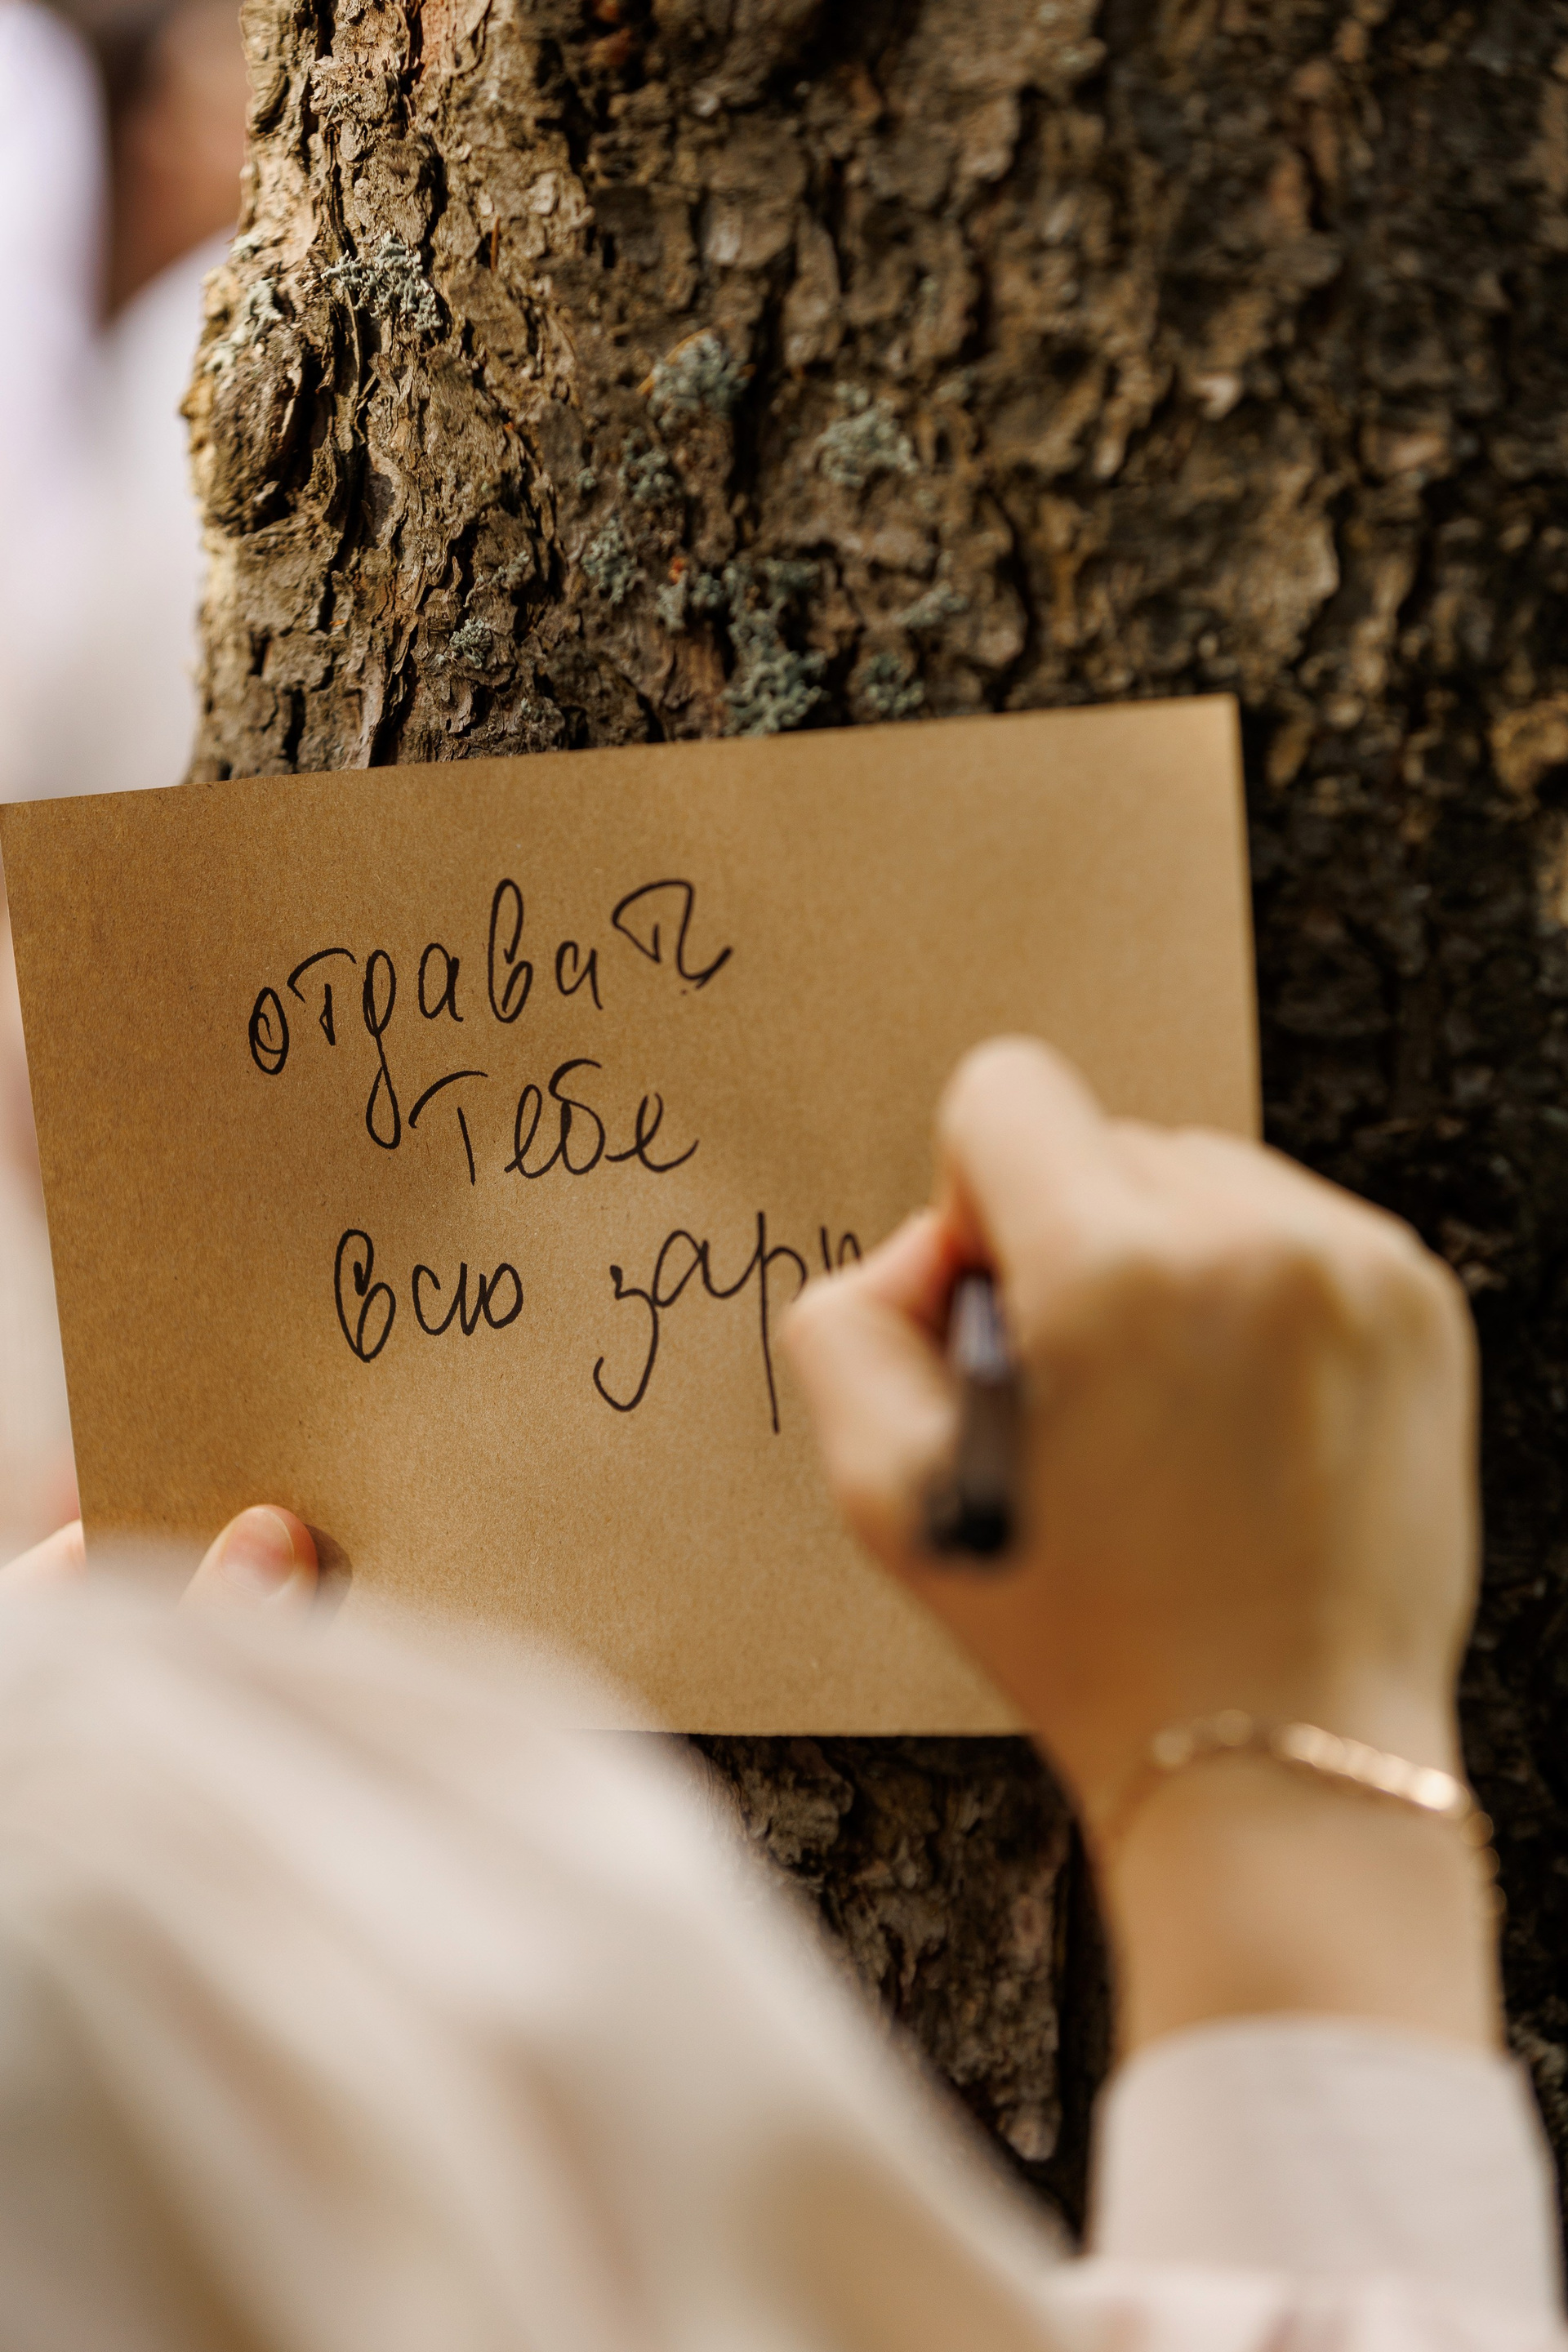 отдавать
тебе
всю зарп